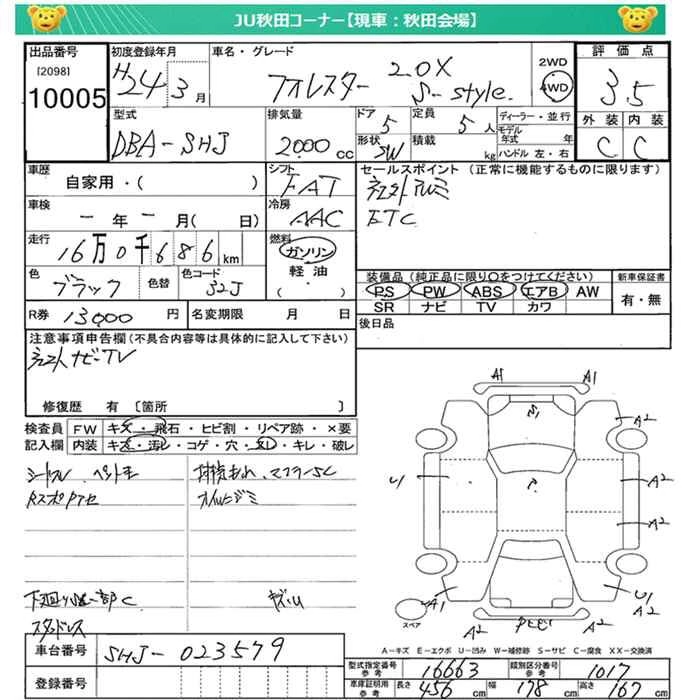 JU秋田コーナー【現車：秋田会場】
出品番号
[2098]
10005
初度登録年月
H24 3月
車名・グレード
フォレスター 2.0X
S-style.
2WD
4WD
評価点
3.5
外装 内装
C C
型式
DBA-SHJ
排気量
2000 cc
ドア
5
形状
SW
定員
5人
積載
kg
ディーラー・並行
モデル年式 年
ハンドル 左・右
車歴
自家用・( )
シフト
FAT
セールスポイント (正常に機能するものに限ります)
社外アルミ
ETC
車検
ー年ー月( 日)
冷房
AAC
走行
16万0千686km
燃料
ガソリン
軽油
( )
色
ブラック
色替
色コード
32J
装備品 (純正品に限り○をつけてください)
PS PW ABS エアB AW
SR ナビ TV カワ
新車保証書
有・無
R券 13000円
名変期限 月 日
後日品
注意事項申告欄 (不具合内容等は具体的に記入して下さい)
社外ナビTV
修復歴 有 〔箇所 〕
検査員記入欄
FW キズ・飛石・ヒビ割・リペア跡・×要
内装 キズ・汚レ・コゲ・穴・スレ・キレ・破レ
オイルニジミ
下廻り 一部C
キズU
スタッドレス
A1 A1
A2
U1
A2
A2
A1
U1
A2
A2
A2
スペア
A-キズ E-エクボ U-凹み W-補修跡 S-サビ C-腐食 XX-交換済
車台番号
SHJ-023579
登録番号
型式指定番号 参考
16663
類別区分番号 参考
1017
車庫証明用 参考
長さ 456cm
幅 178cm
高さ 167cm